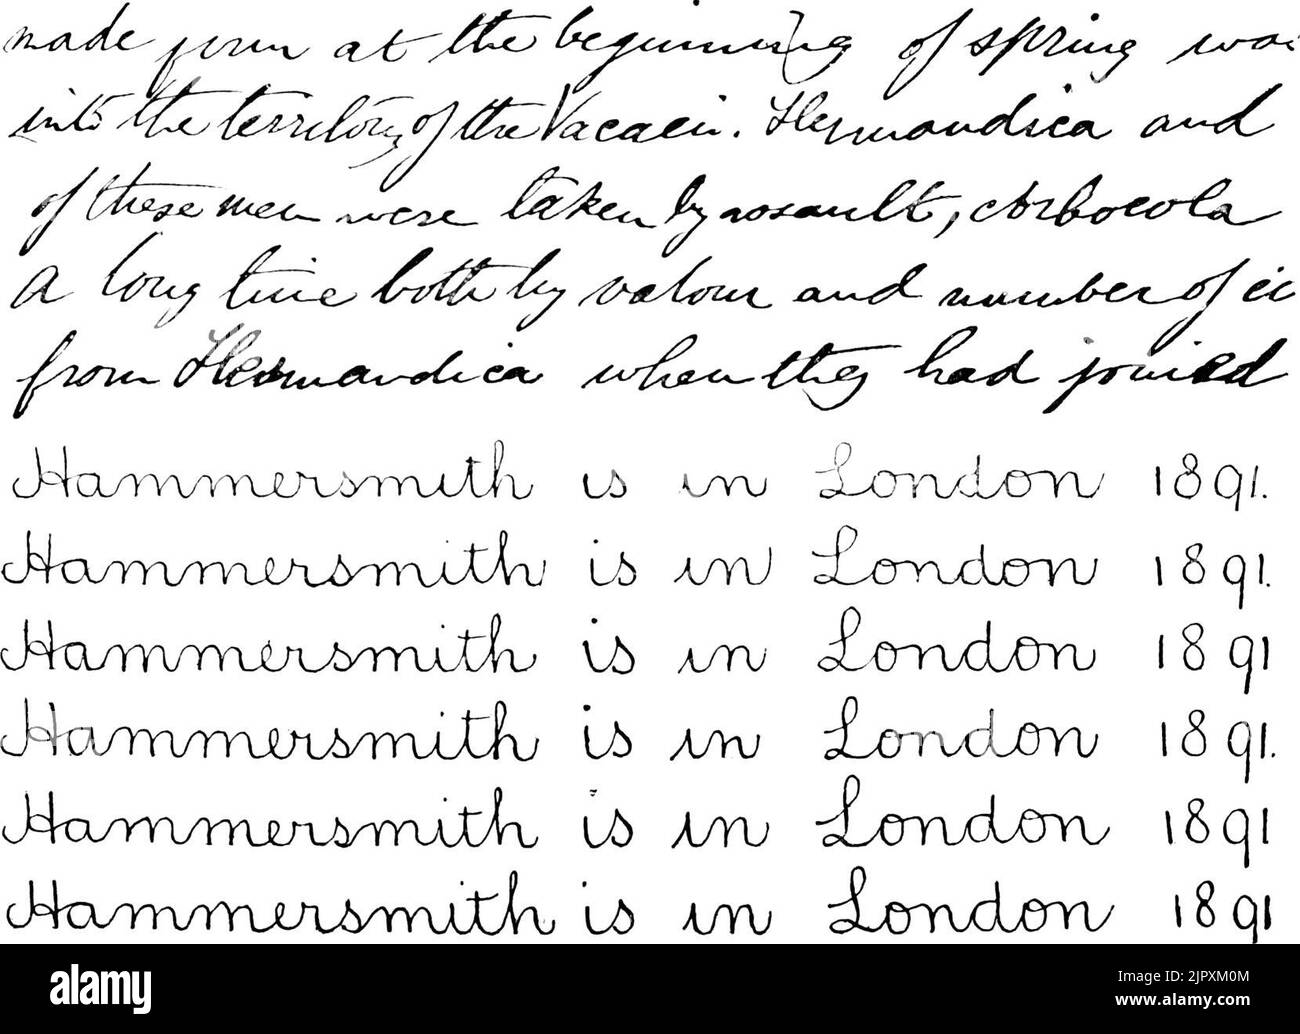 made from at the beginning of spring was
into the territory of the Vacaei. Hermandica and
of these men were taken by assault, Arbocola
a long time both by valour and number of
from Hermandica when they had joined
Hammersmith is in London 1891.
Hammersmith is in London 1891.
Hammersmith is in London 1891
Hammersmith is in London 1891.
Hammersmith is in London 1891
Hammersmith is in London 1891
alamy
Image ID: 2JPXM0M
www.alamy.com